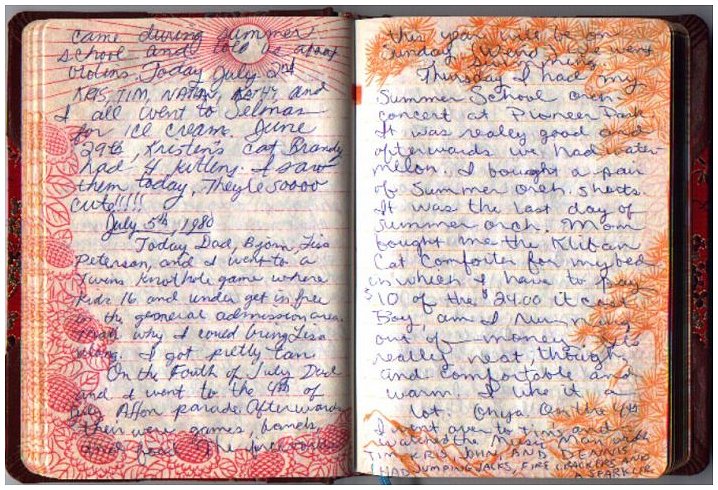 came during summer
school and told us about
violins. Today July 2nd
KRIS, TIM, NATHAN, KATHY and
I all went to Selmas
for ICE CREAM. June
29th, Kristen's cat Brandy
had 4 kittens. I saw
them today, They're soooo
cute!!!!!
July 5th, 1980
Today Dad, Bjorn, Lisa
Peterson, and I went to a
Twins Knothole game where
kids 16 and under get in free
in the general admission area.
why I could bring Lisa
along. I got pretty tan
On the Fourth of July Dad
and I went to the 4th of
July Afton parade. Afterwards
there were games, bands,
and food. The
this year will be on
Sunday. (Weird) We went
swimming.
Thursday I had my
Summer School orch.
concert at Pioneer Park.
It was really good and
afterwards we had water-
melon. I bought a pair
of Summer orch. shorts.
It was the last day of
summer orch. Mom
bought me the Kliban
Cat Comforter for my bed
in which I have to pay
$10 of the $24.00 it cost
Boy, am I running
out of money. It's
really neat, though
and comfortable and
warm. I like it a
lot. Ohya! On the 4th
I went over to Tim's and
watched the Music Man with
TIM, KRIS, JOHN, AND DENNIS.
I HAD JUMPING JACKS, FIRE CRACKERS AND
A SPARKLER